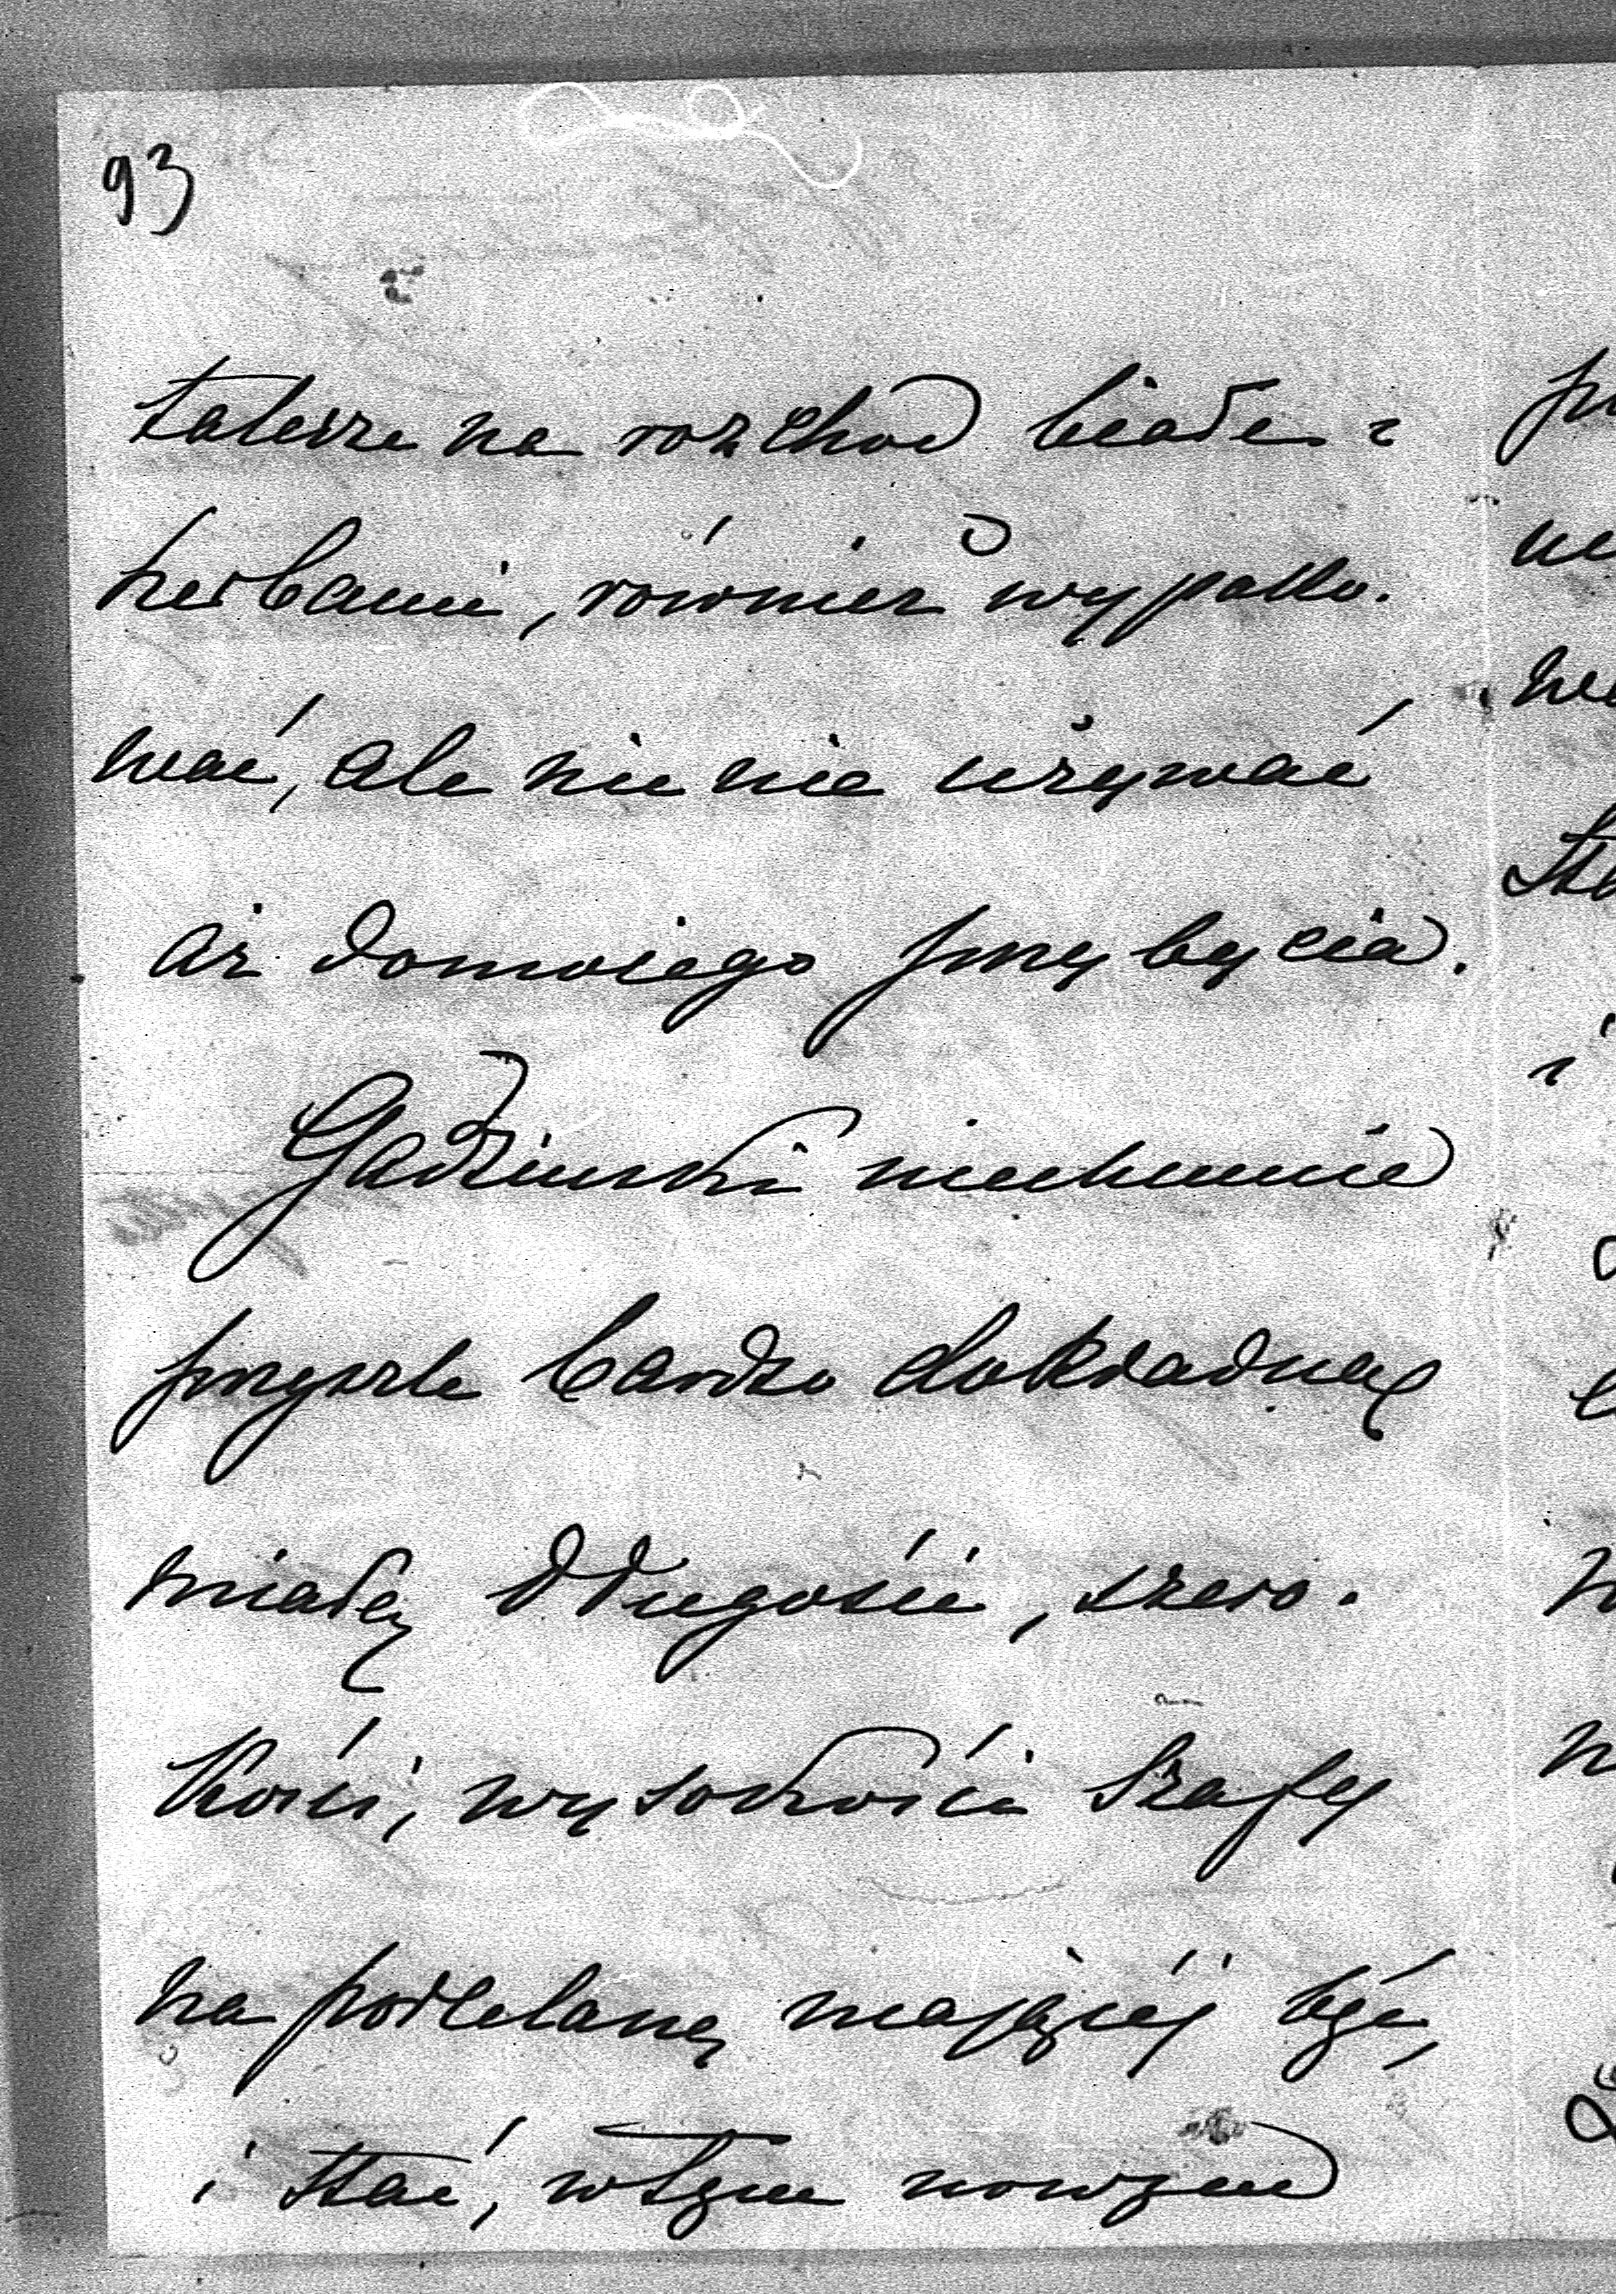 93
talerze na rozchod białe z
herbami, również wypako.
wać, ale nic nie używać
aż do mojego przybycia.
Gadziński niech mnie
przyszle bardzo dokładną
miarę długości, szero.
kości, wysokości szafy
na porcelanę mającéj być,
i stać, w tym nowym